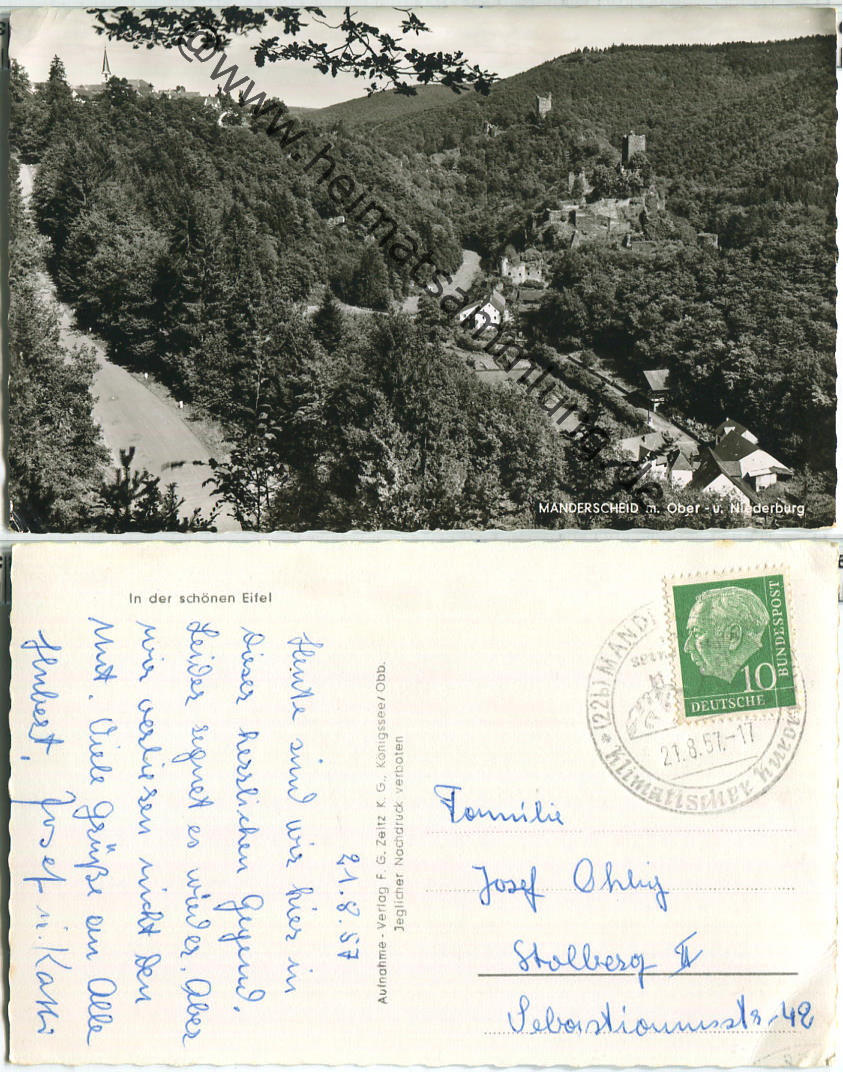 @www.heimatsammlung.de
MANDERSCHEID m. Ober - u. Niederburg
In der schönen Eifel
21.8.57
Heute sind wir hier in
dieser herrlichen Gegend.
Leider regnet es wieder. Aber
wir verliesen nicht den
Mut. Viele Grüße an Alle
Hubert, Josef u. Käthi
Aufnahme - Verlag F. G. Zeitz K. G., Königssee/Obb.
Jeglicher Nachdruck verboten
*(22b) MAND
21.8.57.-17
Klimatischer Kurort
10
DEUTSCHE
BUNDESPOST
Familie
Josef Ohlig
Stolberg II
Sebastianusstr. 42